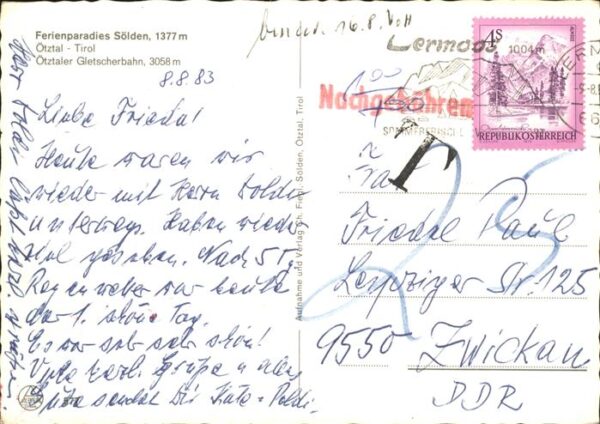 Ferienparadies Sölden, 1377 m
Ötztal - Tirol
Ötztaler Gletscherbahn, 3058 m
8.8.83
Liebe Friedel!
Heute waren wir
wieder mit Herrn Poldi
unterwegs. Haben wieder
viel gesehen. Nach 5 T.
Regenwetter war heute
der 1. schöne Tag.
Es war sehr sehr schön!
Viele herzl. Grüße u. alles
Gute senden Dir Käte + Poldi.
Herr Poldi läßt
Aufnahme und Verlag Ch. Fiegl, Sölden, Ötztal, Tirol
16.8.
Lermoos
1004m
Nachgebühren
T
25
4S
REPUBLIK ÖSTERREICH
Frau
Friedel Paul
Leipziger Str. 125
9550 Zwickau
DDR